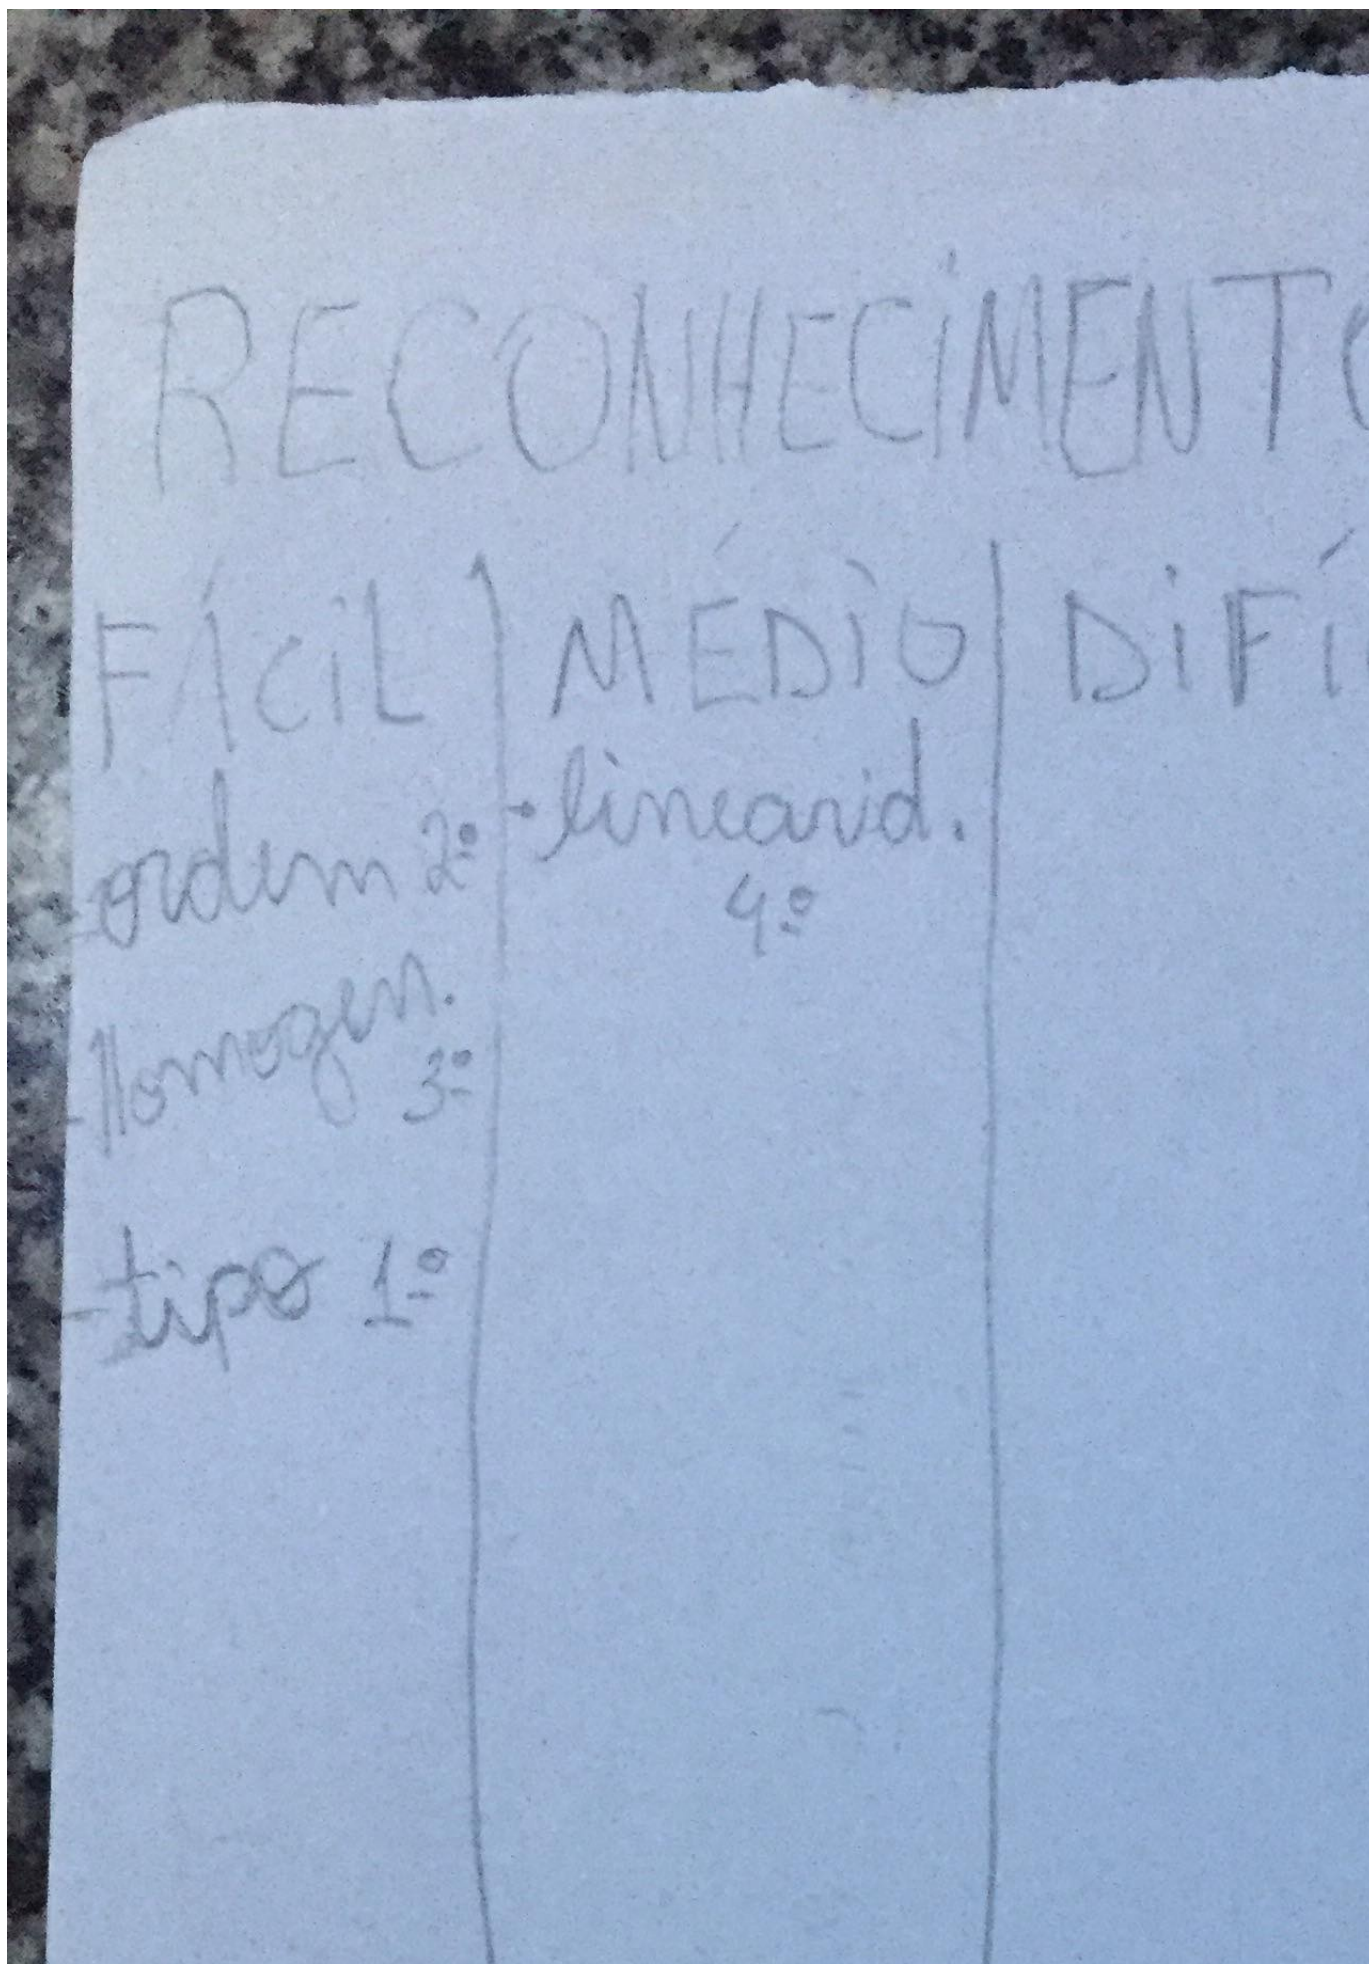 RECONHECIMENTO
FÁCIL MÉDIO DIFÍ
-ordem 2º
-linearid.
4º
-Homogen.
3º
-tipo 1º